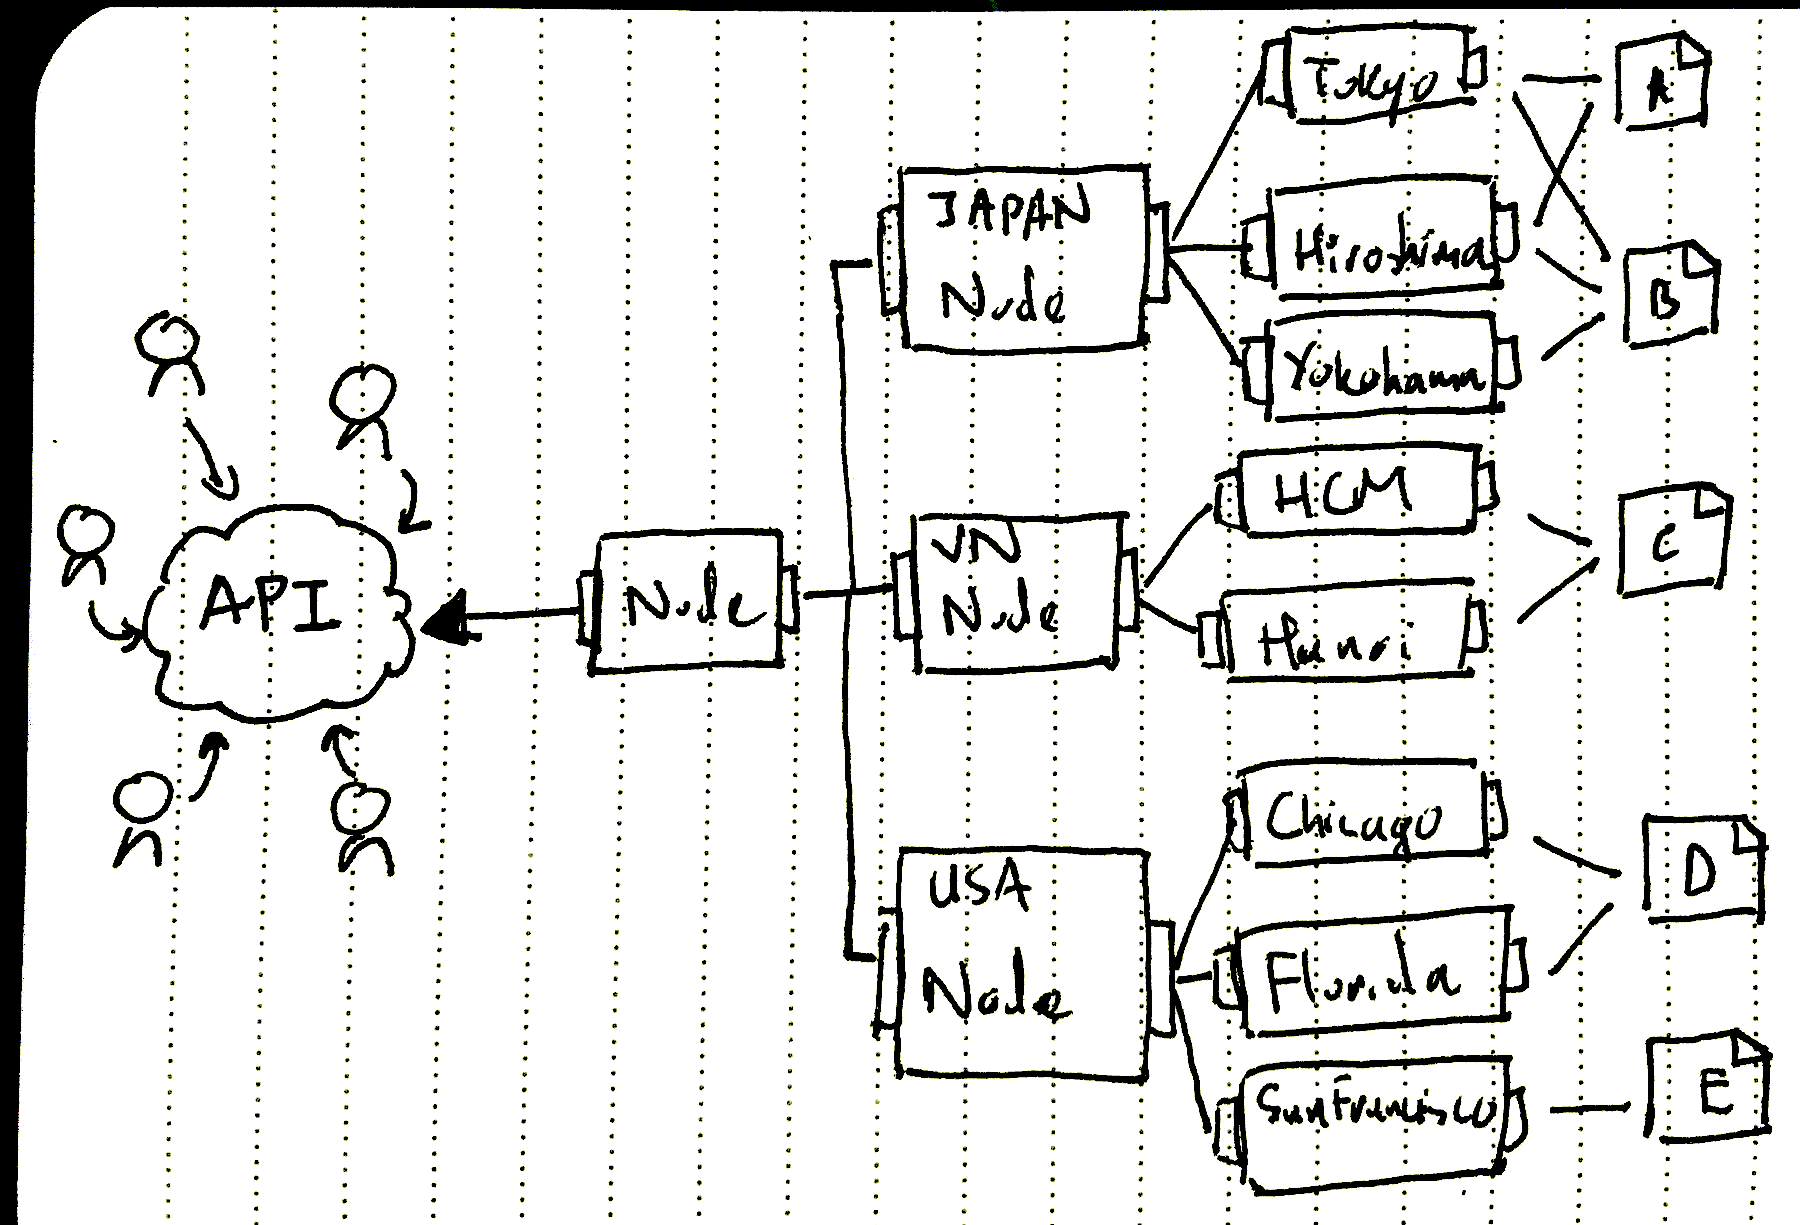 API
Node
JAPAN
Node
VN
Node
USA
Node
Tokyo
Hiroshima
Yokohama
HCM
Hanoi
Chicago
Florida
San Francisco
A
B
C
D
E